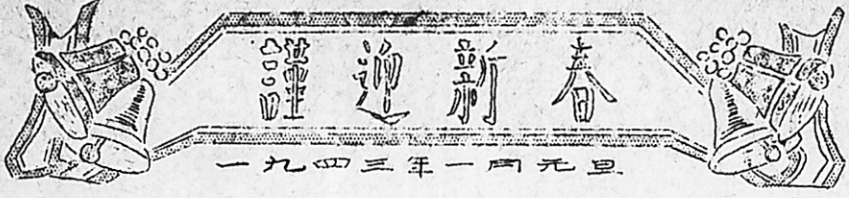 謹迎新春
一九四三年一月元旦